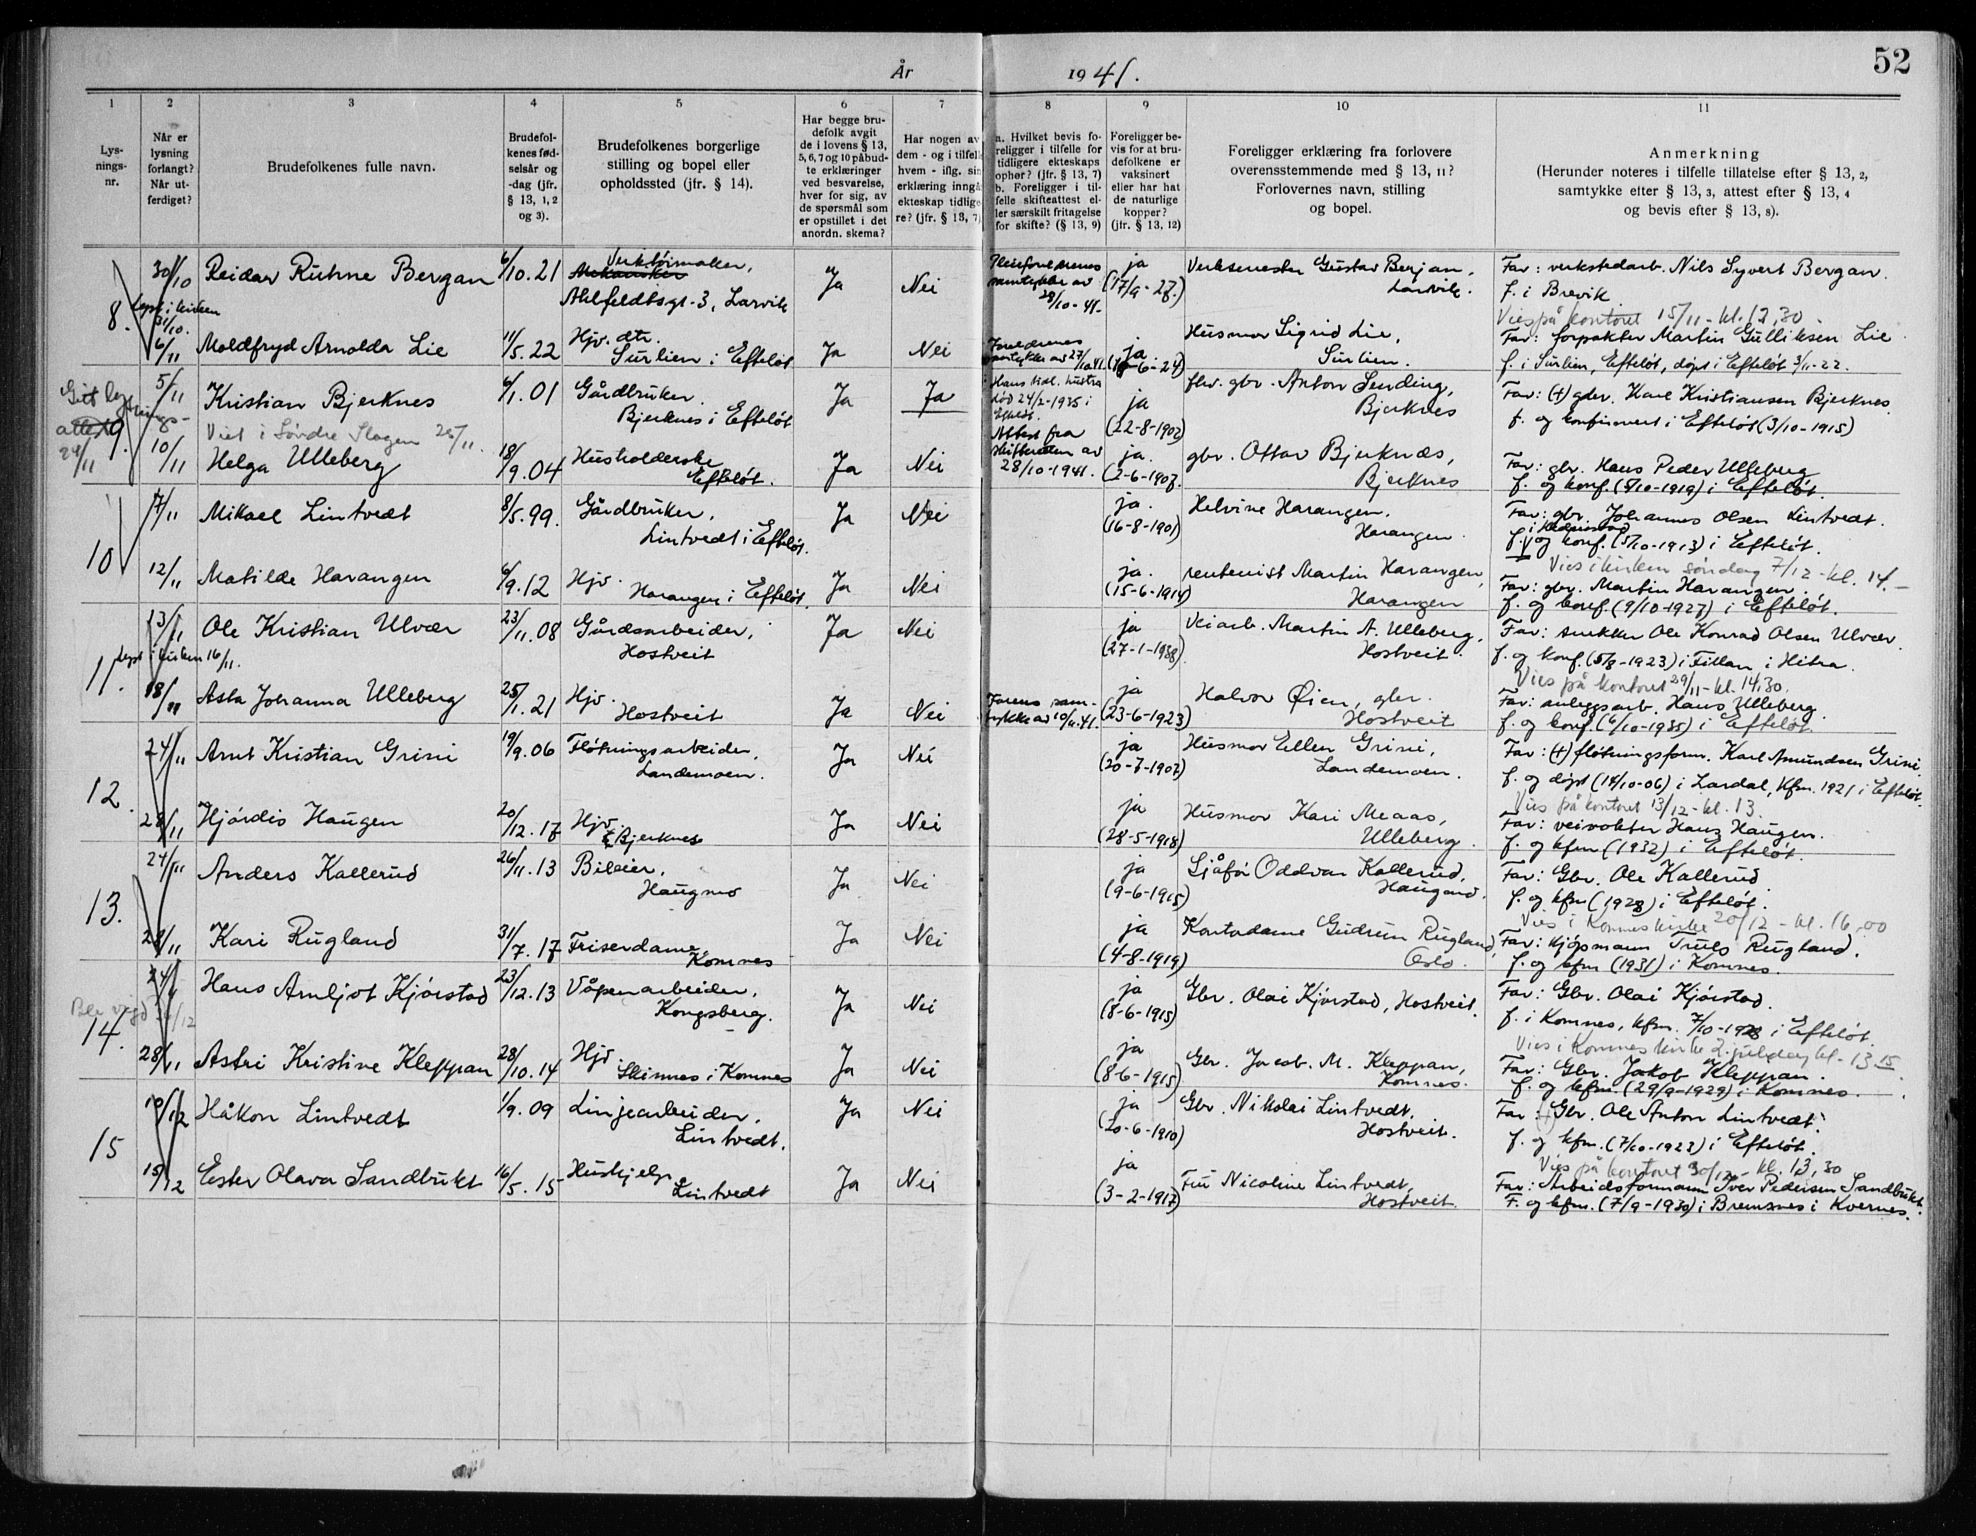 52
År 1941.
1
2
3
4
5
6
7
8
9
10
11
Lys-
nings-
nr.
Når er
lysning
forlangt?
Når ut-
ferdiget?
Brudefolkenes fulle navn.
Brudefol-
kenes fød-
selsår og
-dag (jfr.
§ 13, 1, 2
og 3).
Brudefolkenes borgerlige
stilling og bopel eller
opholdssted (jfr. § 14).
Har begge bru-
defolk avgit
de i lovens § 13,
5, 6, 7 og 10 påbud-
te erklæringer
ved besvarelse,
hver for sig, av
de spørsmål som
er opstillet i det
anordn. skema?
Har nogen av
dem - og i tilfelle
hvem - iflg. sin
erklæring inngå
ekteskap tidlige-
re? (jfr. § 13, 7)
a. Hvilket bevis fo-
religger i tilfelle for
tidligere ekteskaps
ophør? (jfr. § 13, 7)
b. Foreligger i til-
felle skifteattest el-
ler særskilt fritagelse
for skifte? (§ 13, 9)
Foreligger be-
vis for at bru-
defolkene er
vaksinert
eller har hat
de naturlige
kopper?
(jfr. § 13, 12)
Foreligger erklæring fra forlovere
overensstemmende med § 13, 11?
Forlovernes navn, stilling
og bopel.
Anmerkning
(Herunder noteres i tilfelle tillatelse efter § 13, 2,
samtykke efter § 13, 3, attest efter § 13, 4
og bevis efter § 13, 8).
8.
30/10
Reidar Bergan
6/10.21
Verktøimaker,
Mekaniker
Ahlfeldtsgt. 3, Larvik
Ja
Nei
samtykke av
28/10-41.
ja
(17/9-27.)
Verksmester Gustav Bergan,
Larvik.
Far: verkstedarb. Nils Syvert Bergan.
f. i Brevik
Vies på kontoret 15/11 - kl. 13,30
Lyst i kirken
31/10.
6/11
Moldfryd Arnolda Lie
11/5.22
Hjv. dtr.
Surlien i Efteløt
Ja
Nei
Foreldrenes
samtykke av 27/10.41.
ja
Husmor Sigrid Lie,
Surlien.
Far: forpakter Martin Gulliksen Lie
f. i Surlien, Efteløt, døpt i Efteløt 3/11-22.
Gitt lysnings-
attest
24/11
9.
5/11
Kristian Bjerknes
6/1.01
Gårdbruker.
Bjerknes i Efteløt
Ja
Ja
Hans hustru
død 24/2-1935 i
Efteløt.
ja
(22-8-1902)
fhv. gbr. Anton Sending,
Bjerknes
Far: (+) gbr. Karl Kristiansen Bjerknes
f. og konfirmert i Efteløt (3/10-1915)
Viet i Søndre Slagen 25/11.
10/11
Helga Ulleberg
18/9.04
Husholderske
Efteløt.
Ja
Nei
Attest fra
skifteretten av
28/10-1941.
ja.
(2-6-1907.
gbr. Ottar Bjerknæs,
Bjerknes
Far: gbr. Hans Peder Ulleberg
f. og konf. (5/10-1919) i Efteløt.
10
7/11
Mikael Lintvedt
8/5.99.
Gårdbruker,
Lintvedt i Efteløt.
Ja
Nei
ja.
(16-8-1901)
Helvine Harangen,
Harangen
Far: gbr. Johannes Olsen Lintvedt.
f. og konf. (5/10-1913) i Efteløt.
Vies i kirken søndag 7/12 - kl. 14.-
12/11
Matilde Harangen
6/9.12
Hjv.
Harangen i Efteløt.
Ja
Nei
ja.
(15-6-1914)
rentenist Martin Harangen,
Harangen
Far: gbr. Martin Harangen.
f. og konf. (9/10-1927) i Efteløt.
11.
13/11
Ole Kristian Ulvær
23/11.08
Gårdsarbeider,
Hostveit
Ja
Nei
ja
(27-1-1938)
Veiarb. Martin A. Ulleberg,
Hostveit.
Far: snekker Ole Konrad Olsen Ulvær
f. og konf. (5/8-1923) i Fillan i Hitra.
Vies på kontoret 29/11 - kl. 14,30.
Lyst i kirken 16/11.
18/11
Asta Johanna Ulleberg
25/1.21
Hjv.
Hostveit
Ja
Nei
Farens sam-
tykke av 10/11.41.
ja
(23-6-1923)
Halvor Øien, gbr.
Hostveit
Far: anleggsarb. Hans Ulleberg.
f. og konf. (6/10-1935) i Efteløt.
12.
24/11
Arnt Kristian Grini
19/9.06
Fløtningsarbeider,
Landemoen.
Ja
Nei
ja
(20-7-1907)
Husmor Ellen Grini,
Landemoen.
Far: (+) fløtningsform. Karl Amundsen Grini.
f. og døpt (14/10-06) i Lardal, kfm. 1921 i Efteløt.
Vies på kontoret 13/12 - kl. 13.
28/11
Hjørdis Haugen
20/12.17
Hjv.
Bjerknes
Ja
Nei
ja
(28-5-1918)
Husmor Kari Meaas,
Ulleberg.
Far: veivokter Hans Haugen.
f. og kfm (1932) i Efteløt.
13.
24/11
Anders Kallerud
26/11.13
Bileier,
Haugmo
Ja
Nei
ja
(9-6-1915)
Sjåfør Oddvar Kallerud,
Haugmo.
Far: Gbr. Ole Kallerud
f. og kfm (1928) i Efteløt.
Vies i Komnes kirke 20/12 - kl. 16,00
28/11
Kari Rugland
31/7.17
Friserdame
Komnes
Ja
Nei
ja
(4-8-1919)
Kontordame Gudrun Rugland,
Oslo.
Far: Kjøpmann Truls Rugland.
f. og kfm (1931) i Komnes.
Ble vigd 26/12
14.
24/11
Hans Arnljot Kjørstad
23/12.13
Våpenarbeider,
Kongsberg.
Ja
Nei
ja
(8-6-1915)
Gbr. Olai Kjørstad, Hostveit.
Far: Gbr. Olai Kjørstad.
f. i Komnes, kfm. 7/10-1928 i Efteløt.
Vies i Komnes kirke 2. juledag kl. 13 15
28/11
Astri Kristine Kleppan
28/10.14
Hjv
Skinnes i Komnes
Ja
Nei
ja
(8-6-1915)
Gbr. Jacob. M. Kleppan,
Komnes.
Far: Gbr. Jakob Kleppan.
f. og kfm. (29/9-1929) i Komnes.
15
10/12
Håkon Lintvedt
1/9.09
Linjearbeider,
Lintvedt.
Ja
Nei
ja
(20-6-1910)
Gbr. Nikolai Lintvedt,
Hostveit.
Far: Gbr. Ole Anton Lintvedt.
f. og kfm. (7/10-1923) i Efteløt.
Vies på kontoret 30/12 - kl. 13,30
15/12
Ester Olava Sandbukt
16/5.15
Hushjelp
Lintvedt
Ja
Nei
ja
(3-2-1917)
Fru Nicoline Lintvedt,
Hostveit.
Far: Arbeidsformann Iver Pedersen Sandbukt.
F. og kfm. (7/9-1930) i Bremsnes i Kvernes.